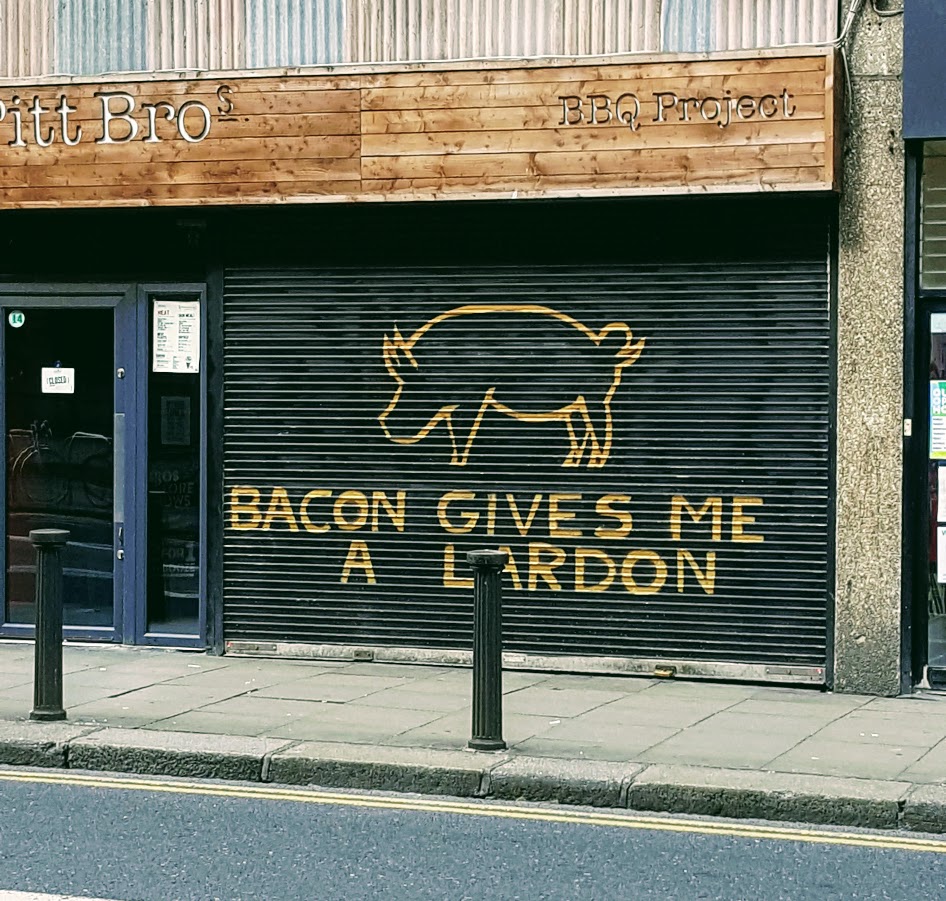 Pitt Bros
BBQ Project
14
CLOSED
MEAT
BACON GIVES ME
A LARDON